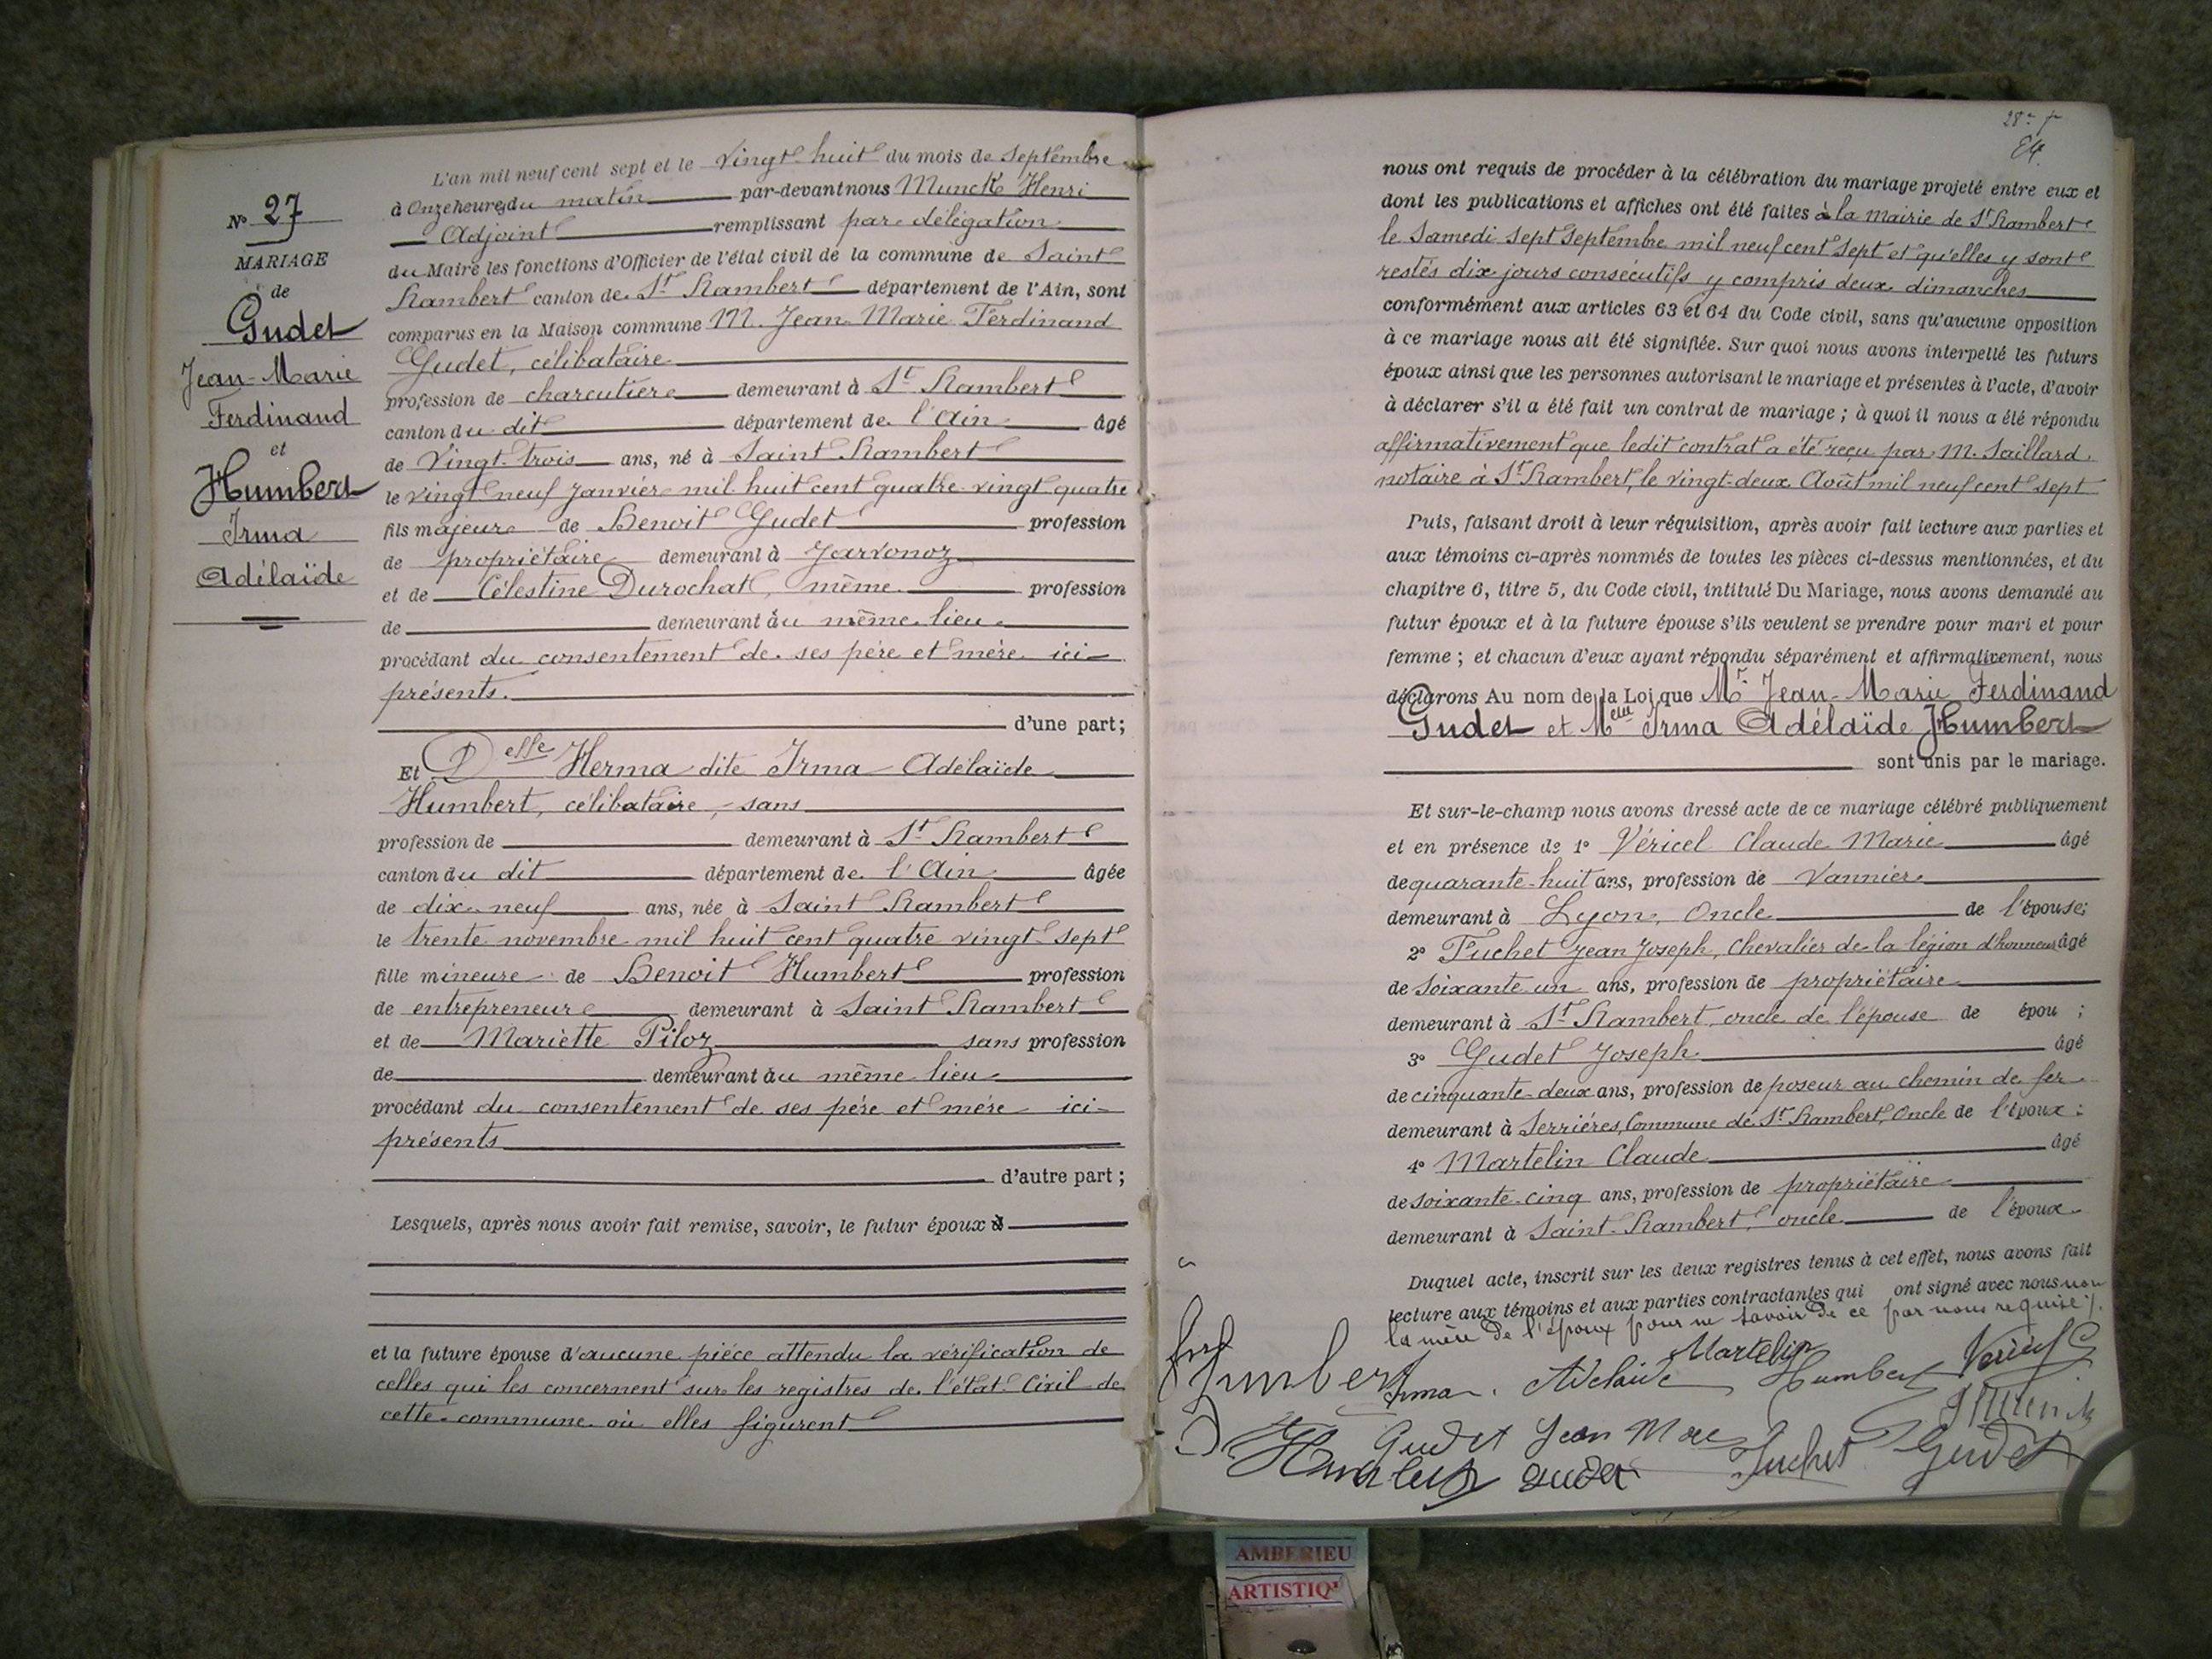 N° 27
MARIAGE
de
Gudet
Jean-Marie
Ferdinand
et
Humbert
Irma
Adélaïde
L'an mil neuf cent sept et le vingt huit du mois de Septembre
à Onze heures du matin par-devant nous Munck Henri
Adjoint remplissant par délégation
du Maire les fonctions d'Officier de l'état civil de la commune de Saint
Rambert canton de St Rambert département de l'Ain, sont
comparus en la Maison commune M. Jean Marie Ferdinand
Gudet, célibataire
profession de charcutier demeurant à St Rambert
canton du dit département de l'Ain âgé
de vingt-trois ans, né à Saint Rambert
le vingt neuf Janvier mil huit cent quatre-vingt quatre
fils majeur de Benoit Gudet profession
de propriétaire demeurant à Javornoz
et de Célestine Durochat, même profession
de demeurant au même lieu
procédant du consentement de ses père et mère ici-
présents.
d'une part;
Et Delle Herma dite Irma Adélaïde
Humbert, célibataire, sans
profession de demeurant à St Rambert
canton du dit département de l'Ain âgée
de dix-neuf ans, née à Saint Rambert
le trente novembre mil huit cent quatre vingt-sept
fille mineure de Benoit Humbert profession
de entrepreneur demeurant à Saint Rambert
et de Mariette Piloz sans profession
de demeurant au même lieu
procédant du consentement de ses père et mère ici-
présents
d'autre part;
Lesquels, après nous avoir fait remise, savoir, le futur époux
et la future épouse d'aucune pièce attendu la vérification de
celles qui les concernent sur les registres de l'état-Civil de
cette commune où elles figurent
28
84
nous ont requis de procéder à la célébration du mariage projeté entre eux et
dont les publications et affiches ont été faites à la Mairie de St Rambert
le Samedi sept Septembre mil neuf cent sept et qu'elles y sont
restés dix jours consécutifs y compris deux dimanches
conformément aux articles 63 et 64 du Code civil, sans qu'aucune opposition
à ce mariage nous ait été signifiée. Sur quoi nous avons interpellé les futurs
époux ainsi que les personnes autorisant le mariage et présentes à l'acte, d'avoir
à déclarer s'il a été fait un contrat de mariage; à quoi il nous a été répondu
affirmativement que ledit contrat a été reçu par M. Saillard
notaire à St Rambert, le vingt-deux Août mil neuf cent sept
Puis, faisant droit à leur réquisition, après avoir fait lecture aux parties et
aux témoins ci-après nommés de toutes les pièces ci-dessus mentionnées, et du
chapitre 6, titre 5, du Code civil, intitulé Du Mariage, nous avons demandé au
futur époux et à la future épouse s'ils veulent se prendre pour mari et pour
femme; et chacun d'eux ayant répondu séparément et affirmativement, nous
déclarons Au nom de la Loi que Mr Jean-Marie Ferdinand
Gudet et Melle Irma Adélaïde Humbert
sont unis par le mariage.
Et sur-le-champ nous avons dressé acte de ce mariage célébré publiquement
et en présence de 1° Véricel Claude Marie âgé
de quarante-huit ans, profession de Vannier
demeurant à Lyon, Oncle de l'épouse;
2° Fuchet Jean Joseph, Chevalier de la légion d'honneur âgé
de soixante un ans, profession de propriétaire
demeurant à St Rambert, oncle de l'épouse de épou ;
3° Gudet Joseph âgé
de cinquante-deux ans, profession de poseur au chemin de fer
demeurant à Serrières, Commune de St Rambert, Oncle de l'époux;
4° Martelin Claude âgé
de soixante-cinq ans, profession de propriétaire
demeurant à Saint-Rambert, oncle de l'époux
Duquel acte, inscrit sur les deux registres tenus à cet effet, nous avons fait
lecture aux témoins et aux parties contractantes qui ont signé avec nous non
la mère de l'époux pour ne savoir de ce par nous requise
Martelin
Humbert Irma Adelaide Humbert Véricel
Munck
Gudet Jean Marie Fuchet Gudet
Humbert Gudet
AMBERIEU
ARTISTIQ'